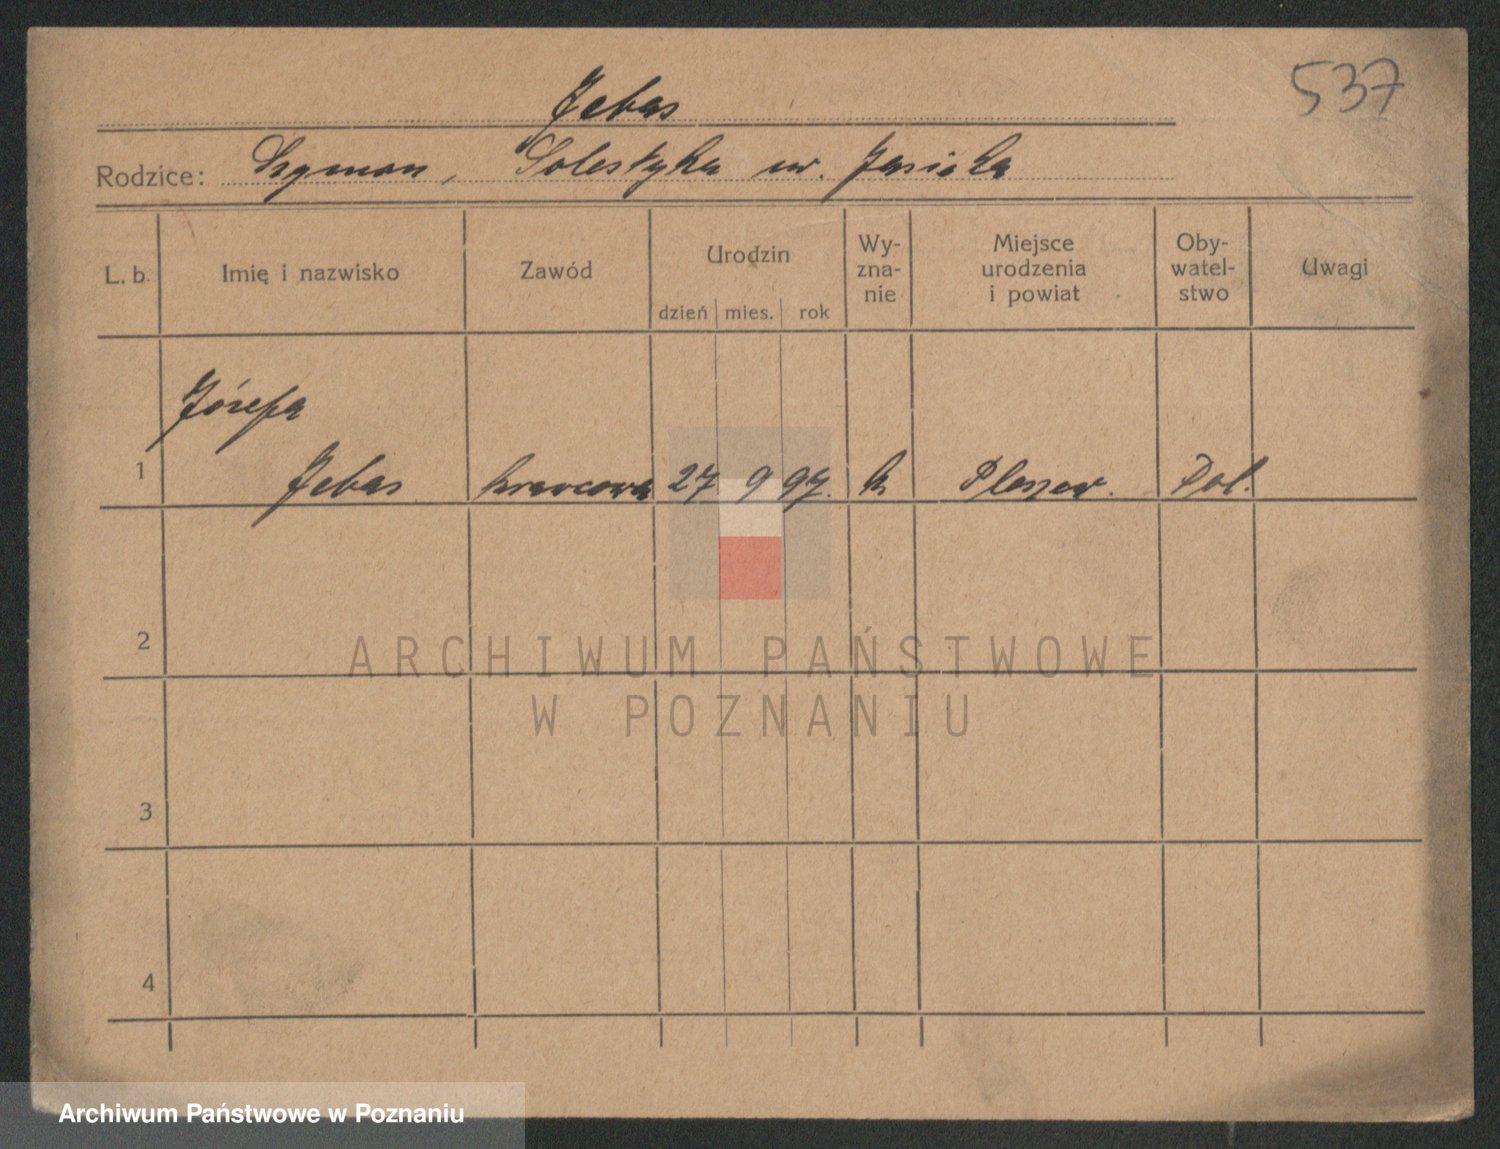 537
Jebas
Rodzice: Szymon, Solestyka ur. Jasicka
L. b.
Imię i nazwisko
Zawód
Urodzin
dzień mies. rok
Wy-
zna-
nie
Miejsce
urodzenia
i powiat
Oby-
watel-
stwo
Uwagi
Józefa
1 Jebas krawcowa 27 9 97. k Pleszew. Pol.
2
3
4
ARCHIWUM PAŃSTWOWE
W POZNANIU
Archiwum Państwowe w Poznaniu